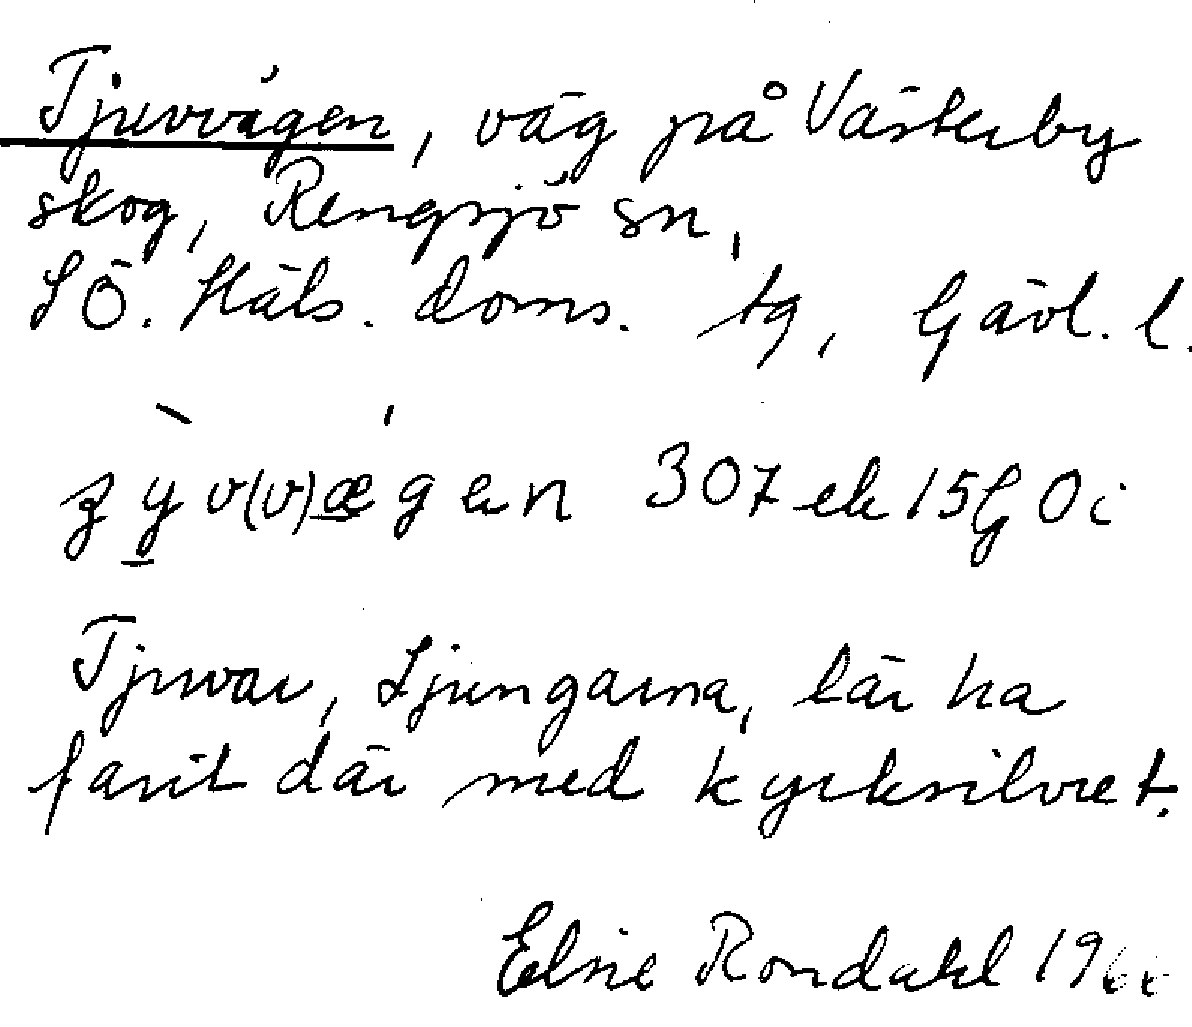 Tjuvvägen, väg på Västerby
skog, Rengsjö sn,
SÖ. Häls. doms. tg, Gävl. l.
v(v)ægen 307 ek 15 G Oi
Tjuvar, Ljungarna, lär ha
farit där med kyrksilvret.
Elsie Rondahl